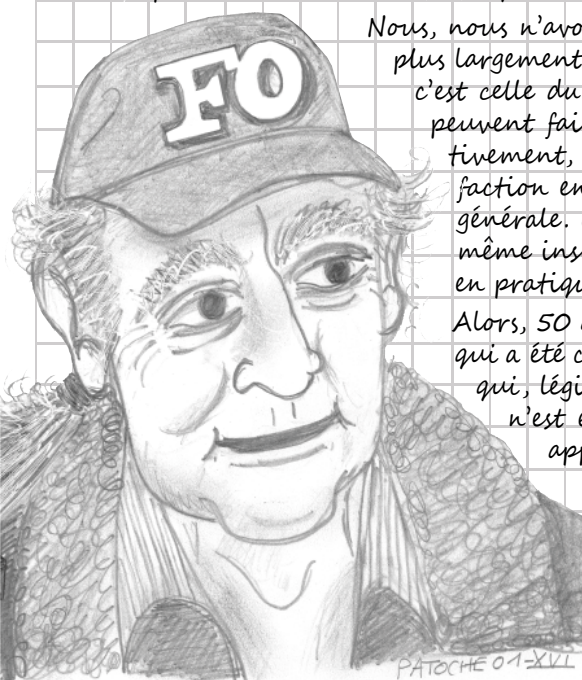 Nous, nous n'avo
plus largement
c'est celle du
peuvent fai
tivement,
faction en
générale.
même ins
en pratiqu
Alors, 50
qui a été c
qui, légi
n'est e
app
FO
PATOCHE 01-XVI